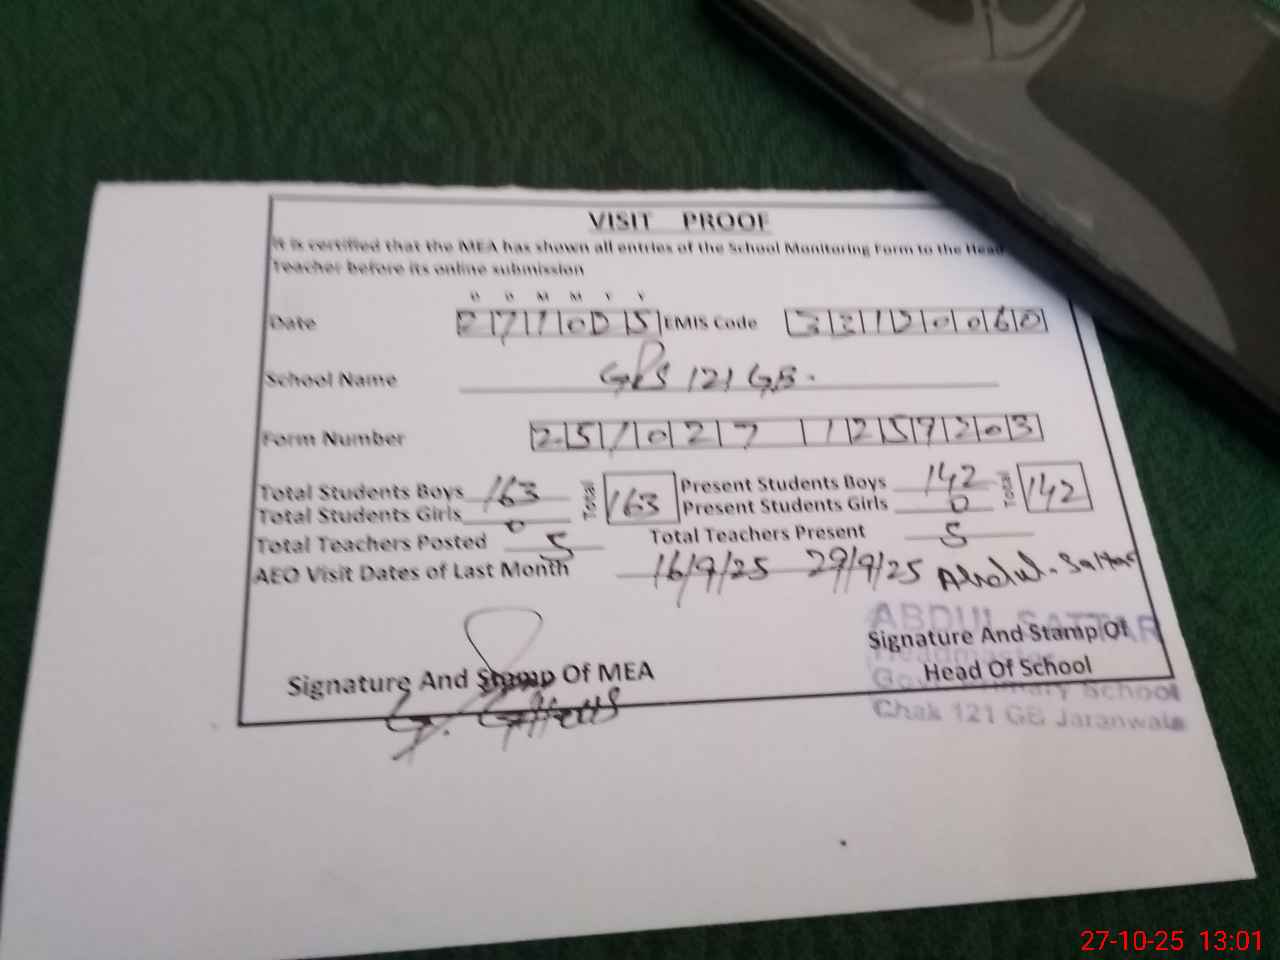 VISIT PROOF
It is certified that the MEA has shown all entries of the School Monitoring Form to the Head
Teacher before its online submission
D D M M Y Y
Date 271025 EMIS Code 33120060
School Name GPS 121 GB.
Form Number 251027 1257203
Total Students Boys 163 Total 163 Present Students Boys 142 Total 142
Total Students Girls 0 Present Students Girls 0
Total Teachers Posted 5 Total Teachers Present 5
AEO Visit Dates of Last Month 16/9/25 29/9/25 Abdul-Sattar
ABDUL SATTAR
Signature And Stamp Of MEA Signature And Stamp Of
Head Of School
Headmaster
Govt Primary School
Chak 121 GB Jaranwala
27-10-25 13:01